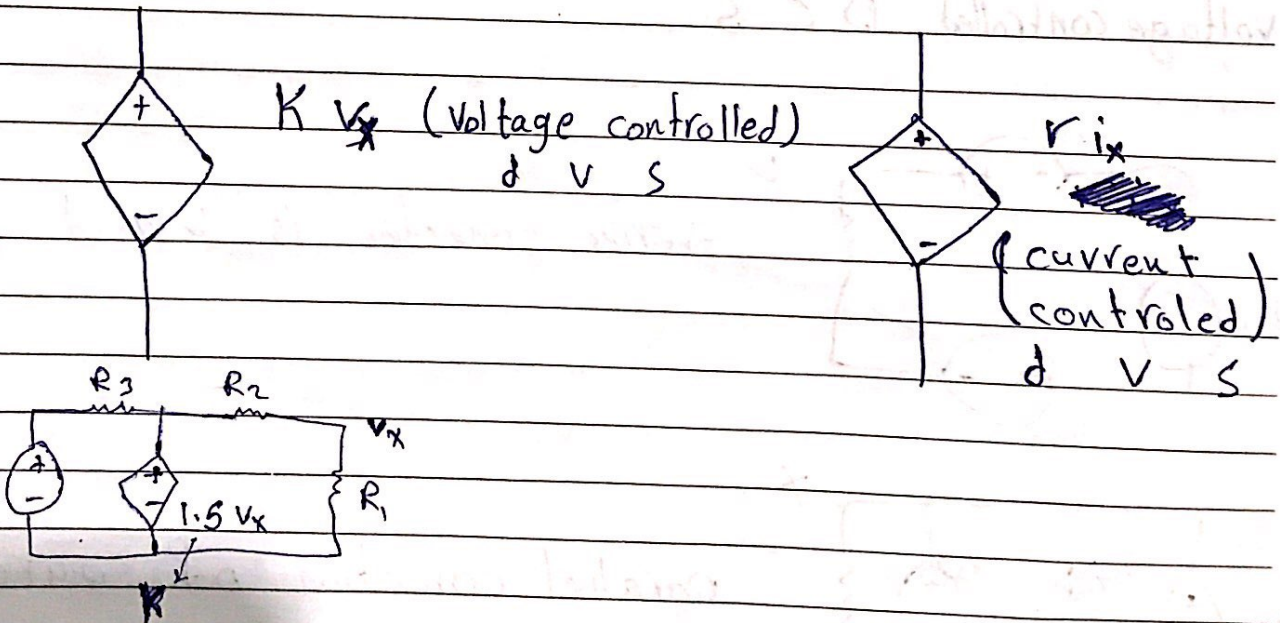 +
-
K Vx (voltage controlled)
d v s
+
-
r ix
(current
controled)
d v s
R3 R2
Vx
+
-
+
-
1.5 Vx
R1
K